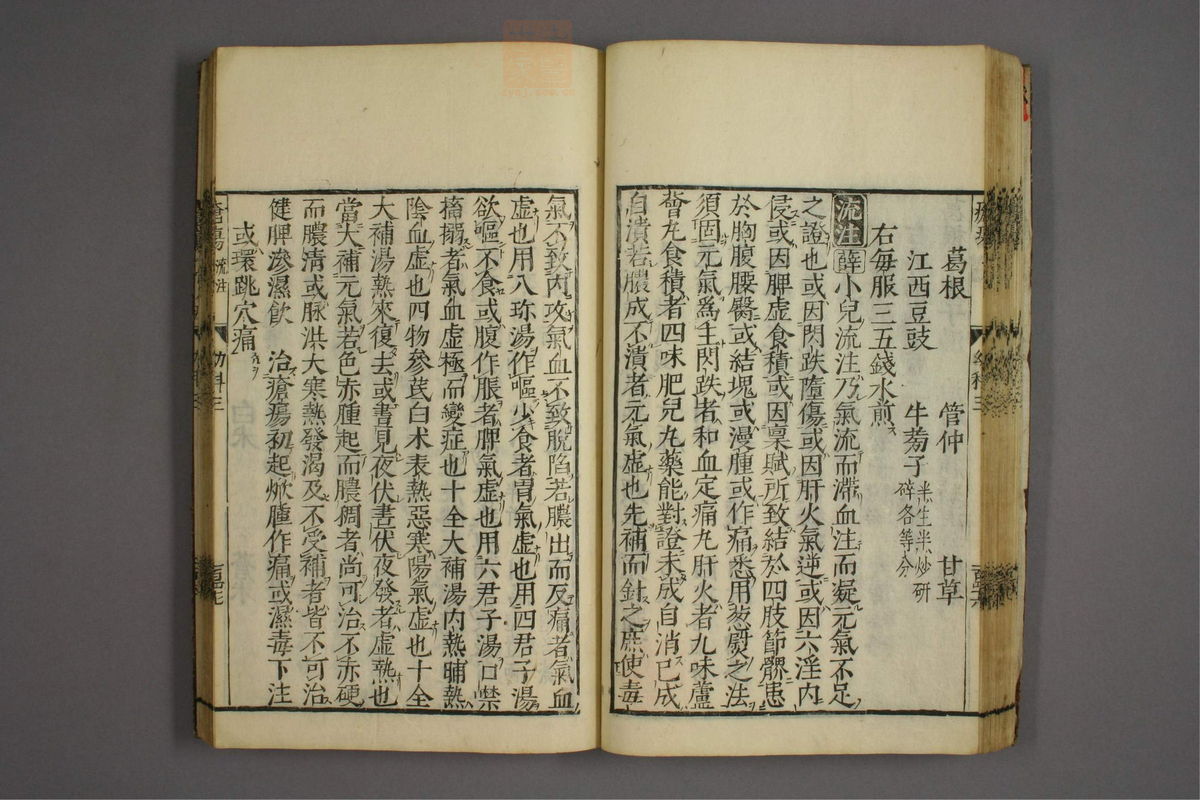 葛根　管仲　甘草
江西豆豉　牛蒡子半生半炒研碎各等分
右每服三五錢水煎
流注　薛　小兒流注乃氣流而滯血注而凝元氣不足
之證也或因閃跌墮傷或因肝火氣逆或因六淫內
侵或因脾虛食積或因稟賦所致結於四肢節髎患
於胸腹腰臀或結塊或漫腫或作痛悉用葱熨之法
須固元氣爲主閃跌者和血定痛丸肝火者九味蘆
薈丸食積者四味肥兒丸藥能對證未成自消已成
自潰若膿成不潰者元氣虛也先補而針之庶使毒
氣不致內攻氣血不致脫陷若膿出而反痛者氣血
虛也用八珍湯作嘔少食者胃氣虛也用四君子湯
欲嘔不食或腹作脹者脾氣虛也用六君子湯口噤
搐搦者氣血虛極而變症也十全大補湯內熱晡熱
陰血虛也四物參芪白术表熱惡寒陽氣虛也十全
大補湯熱來復去或晝見夜伏晝伏夜發者虛熱也
當大補元氣若色赤腫起而膿稠者尚可治不赤硬
而膿清或脉洪大寒熱發渴及不受補者皆不可治
健脾滲濕飲　治瘡瘍初起焮腫作痛或濕毒下注
或環跳穴痛
瘡瘍　流注　幼科三